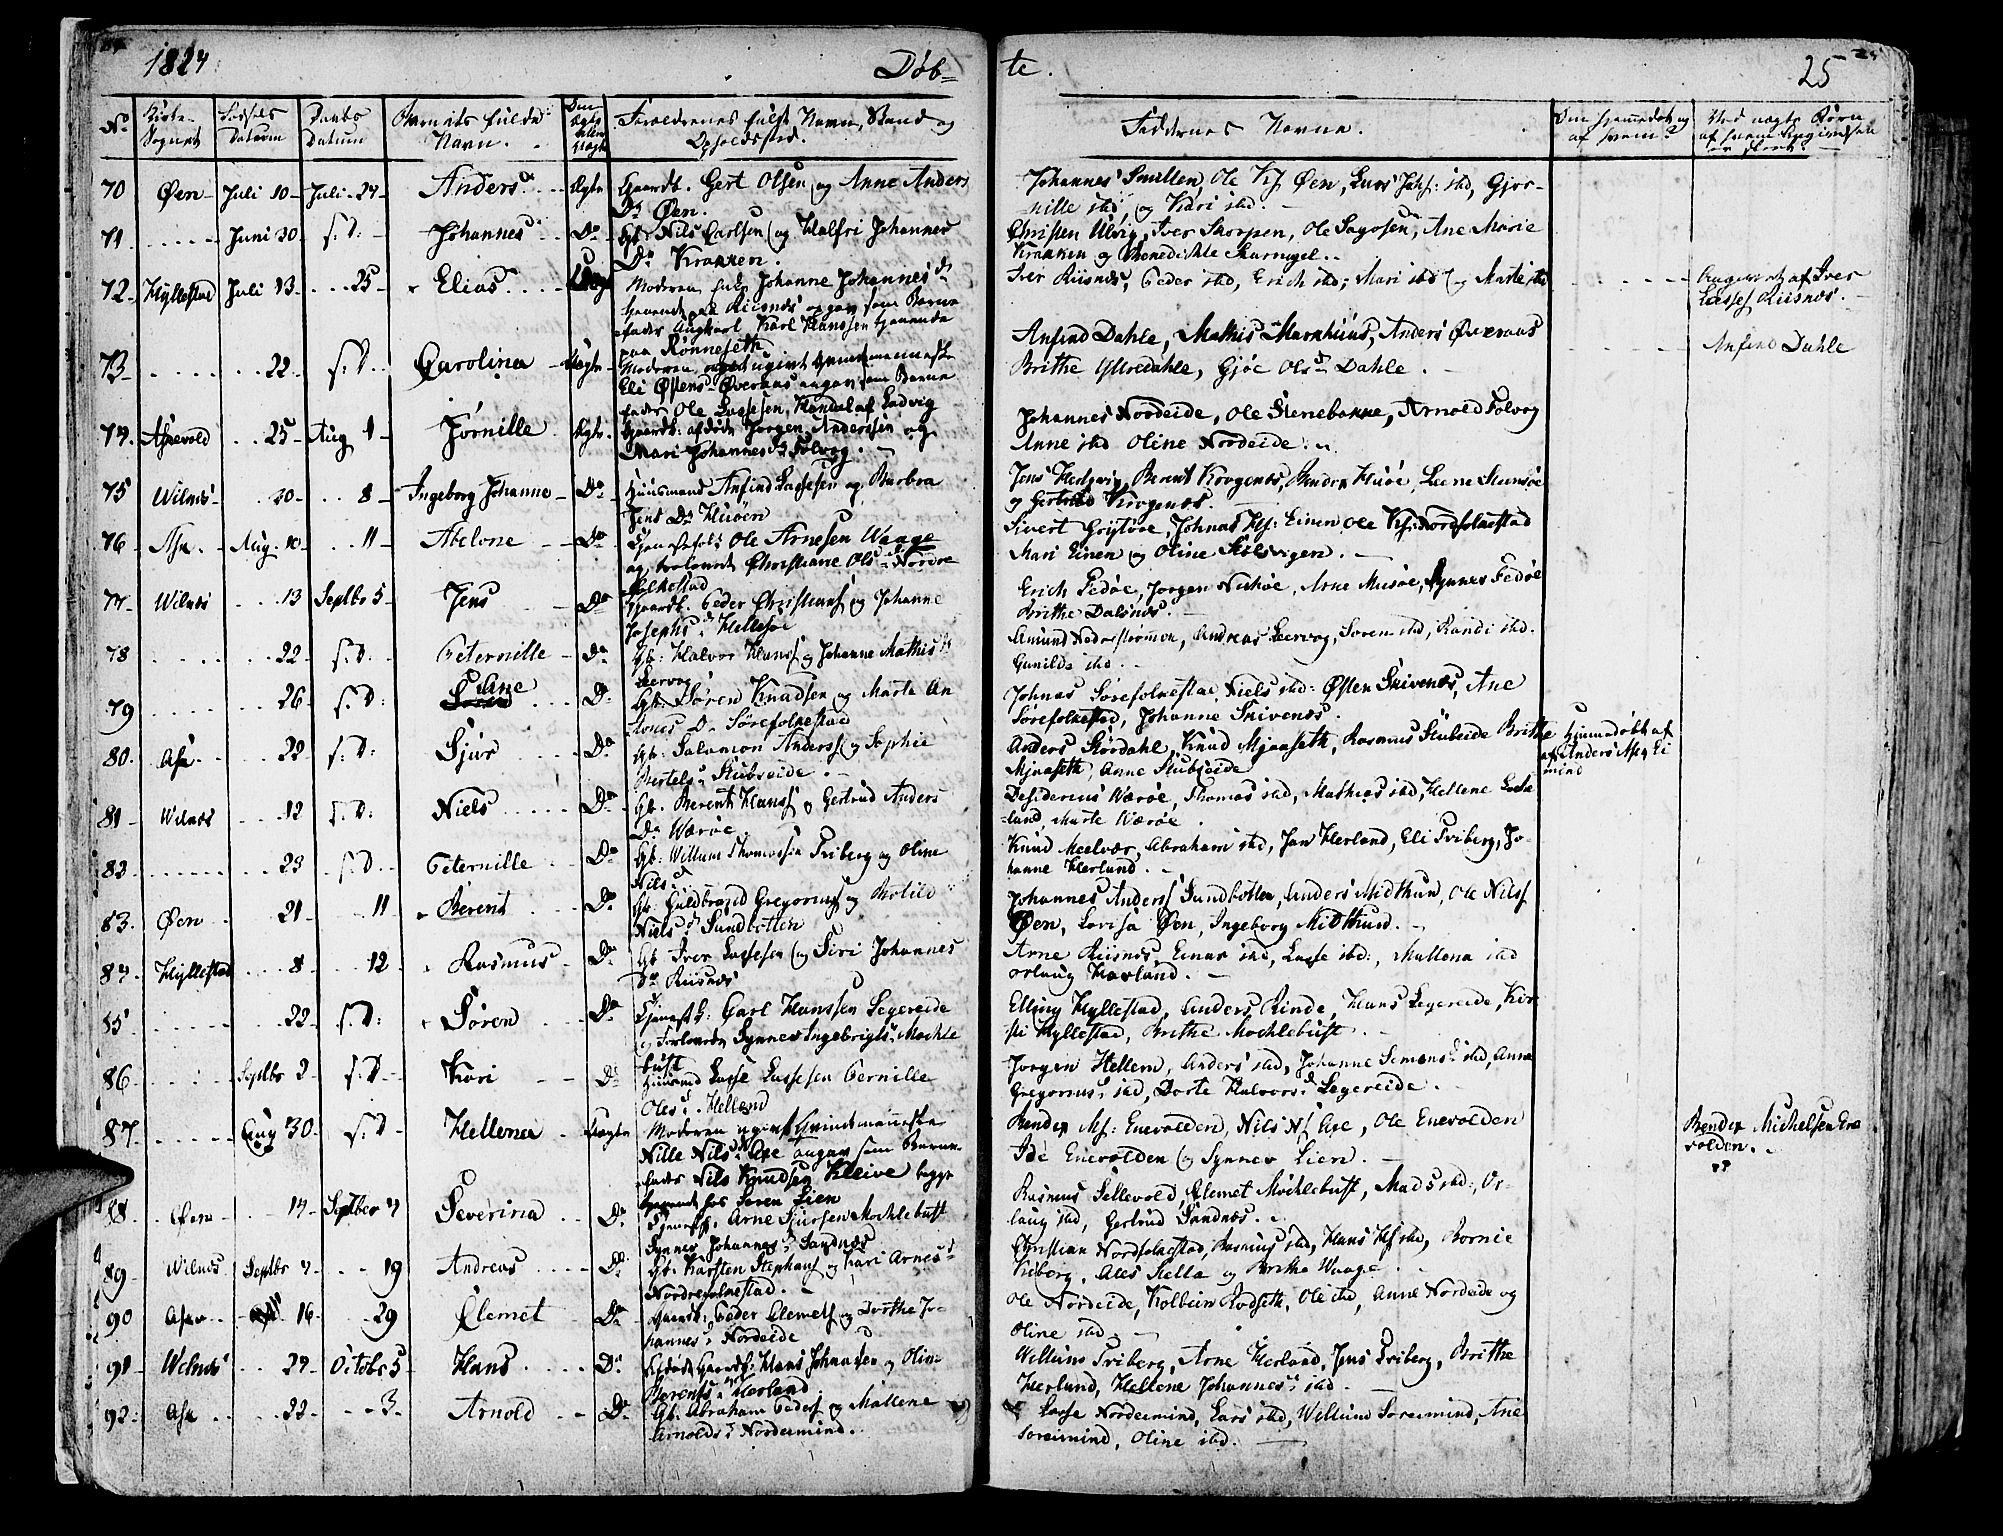 1824.
Døb=
te.
25
No
Kirke-Sognet
Fødsels Datum
Daabs Datum
Barnets fulde Navn.
Om Ægte eller Uægte
Forældrenes fulde Navn, Stand og Opholdssted.
Faddernes Navne.
Om hjemmedøbt og af hvem?
Ved uægte Børn af hvem Angivelsen er skeet?
70 Øen Juli 10 Juli 24 Anders Ægte Gaardb. Gert Olsen og Anne Anders
Dr Øen.
Johannes Smillen, Ole Øen, Lars ibd, Gjor-
nille ibd, og Kari ibd.
71 Juni 30 s: D: Johannes Do Gb: Nils Carlsen og Halfri Johannes
Dr Kraaken.
Christen Ulvig, Iver Skorpen, Ole Sagosen, Ane Marie
Kraaken og Benedichte
72 Hyllestad Juli 13 25 Elias Uægte Moderen Johanne Johannes Dr
tjenende paa Riisnæs opgav som Barne
fader Ungkarl Karl Hanssen tjenende
paa Rønneseth
Iver Riisnæs, Peder ibd, Erich ibd, Mari ibd og Marte ibd
Angivet af Iver
Lasses Riisnæs.
73 22 s: D. Carolina Uægte Moderen ugivt Qvindemenneske
Eli Østens Dr Øveraas angav som Barne
fader Ole Lassesen, Handal af Ladvig
Anfind Dahle, Mathis Markhuus, Anders Øveraas
Brithe Yttredahle, Gjøe Ols Dr Dahle.
Anfind Dahle
74. Askevold 25 Aug 1 Jørnille Ægte. Gaardb: afdøde Jørgen Anderssen og
Mari Johannes Dr Folvog.
Johannes Nordeide, Ole Stenebakke, Arnold Folvog
Anne ibd Oline Nordeide.
75 Wilnæs 30 8 Ingeborg Johanne Do Huusmand Anfind Lassesen og Barbra
Jens Dr Husøen
Jens Husøe, Berent Krogenæs, Bendix Husøe, Leene
og Gertrud Krogenæs.
76 Ask. Aug. 10 11 Abelone Do Tjenestefolk Ole Arnesen Waage
og trolovede Christiane Ols Dr Nordre
folkestad
Sivert Gryttøre, Johnas Einen Ole Nordrefolkestad
Mari Einen og Oline
77 Wilnæs 13 Septbr 5 Jens Do Gaardb. Peder Christians og Johanne
Josephs Dr Hellesøe
Erich Fedøe, Jørgen Ækøe, Arne Musøe, Synnev Fedøe
Brithe Dalsnæs.
78 22 s: D. Peternille Do Gb: Halvor Hanss og Johanne Mathis Dr
Leervog
Amund Andreas Leervog, Soren ibd, Randi ibd.
Gunilda ibd.
79 26 s: D: Ane Do Gb Søren Knudsen og Marte An
tonis Dr Sørefolkestad
Johnas Sørefolkestad, Niels ibd: Østen Skivenæs, Ane
Sørefolkestad, Johanne Skivenæs.
80. Ask 22 s: D: Sjur Do Gb: Salamon Anderss og Sophie
Bertels Dr Stubseide.
Anders Stordahl, Knud Mjaaseth, Rasmus Stubseide Brithe
Mjaaseth, Anne Stubseide
Hjemmedøbt af
Anders
81 Wilnæs 12 s: D: Niels Do Gb. Berent Hanss og Gertrud Anders
Dr Wærøe
Desiderius Wærøe, Thomas ibd, Mathias ibd, Hellene
land, Marte Wærøe.
82 23 s: D. Peternille Do Gb: Willum Thomassen Friberg og Oline
Nils Dr
Knud Meelvær, Abraham ibd, Jan Herland, Eli Friberg, Jo-
hanne Herland.
83. Øen 21 11 Berent Do Gb. Guldbrand Gregoriuss og Botild
Niels Dr Sundbotten
Johannes Anderss Sundbotten, Anders Midthun, Ole Nilss
Øen, Lovisa Øen, Ingeborg Midthun.
84. Hyllestad 8 12 Rasmus Do Gb Iver Lassesen og Siri Johannes
Dr Riisnæs
Arne Riisnæs, Einar ibd, Lasse ibd:, Mallena ibd
Herland.
85 22 s: D: Søren Do Tjenestf: Carl Hanssen Legereide
og Forlovede Synnev Ingebrigts Dr Mochle
bust
Elling Hyllestad, Anders Rinde, Hans Legereide, Kir
sti Hyllestad, Brithe Mochlebust.
86 Septbr 2 s: D. Kari Do Huusmand Lasse Lassesen Pernille
Oles Dr Helland
Jorgen Hellem, Anders ibd, Johanne Simons Dr ibd, Anne
Gregorius Dr ibd, Dorte Halvors Dr Legereide.
87. Aug 30 s: D Hellena Uægte Moderen ugivt Qvindemenneske
Nille Nils Dr Aae angav som Barne-
fader Nils Knudsen Kleive begge
tjenende hos Søren Lien
Bendix Ms: Enevolden, Nils Ns Aae, Ole Enevolden
Ide Enevolden og Synnev Lien.
Bendix Michelsen Ene
volden.
88. Øen 14 Septber 7 Severina Do Tjenestf. Arne Sjursen Mochlebust
Synnev Johannes Dr Sandnæs
Rasmus Sellevold, Clemet Mochlebust, Mads ibd:, Or-
laug ibd, Gertrud Sandnæs.
89 Wilnæs Septbr 7 19 Andreas Do Gb: Karsten Stephans og Kari Arnes Dr
Nordrefolkestad.
Christian Nordfolkestad, Rasmus ibd, Hans Hs ibd, Bornie
Kiberg, Ales Stella og Brithe Waage
90 Ask 16 29 Clemet Do Gaardb: Peder Clemets og Dorthe Jo-
hannes Dr Nordeide
Ole Nordeide, Kolbein Rodseth, Ole ibd, Anne Nordeide og
Oline ibd
91 Wilnæs 29 October 5 Hans Do Gaardb: Hans Johnassen og Oline
Berents Dr Herland
Wellum Friberg, Arne Herland, Jens Friberg, Brithe
Herland, Hellene Johannes Dr ibd.
92: Ask 22 3 Arnold Do Gb: Abraham Peders og Mallene
Arnolds Dr Nordermind.
Lasse Nordermind, Lars ibd, Wellum Soremind, Ane
Soremind, Oline ibd.